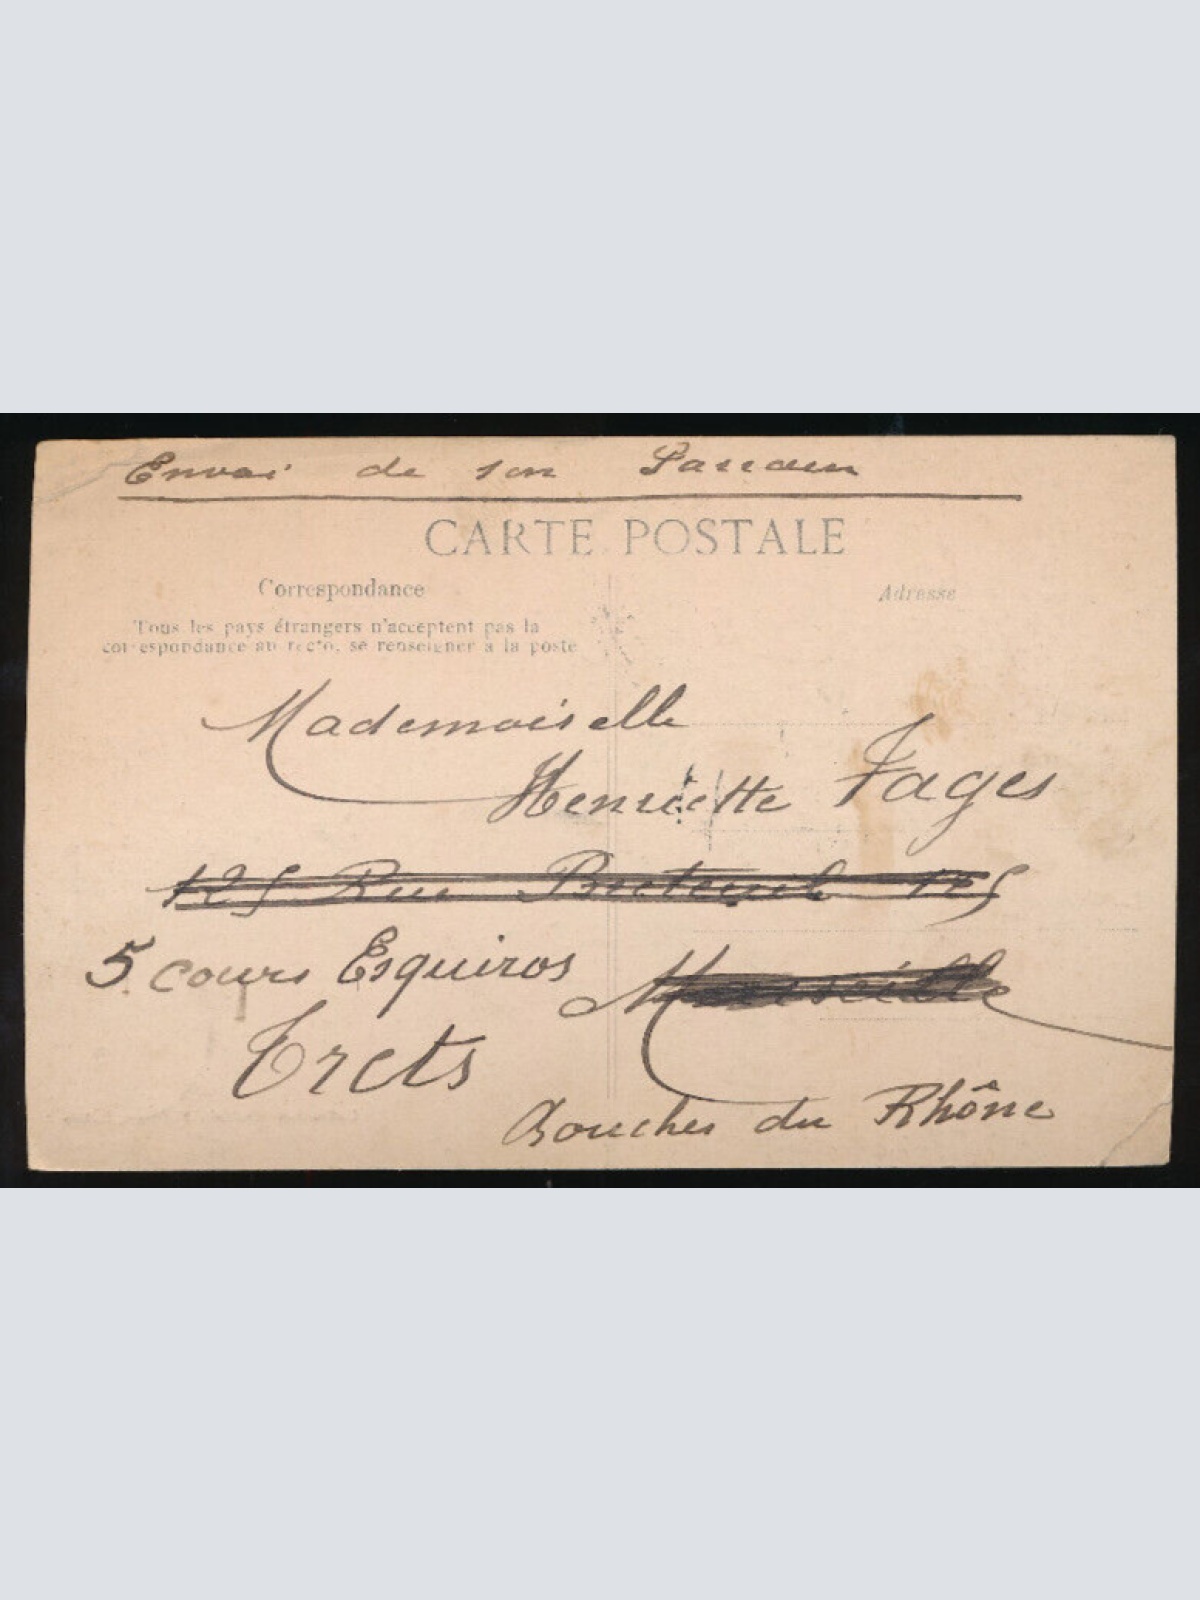 Envoi de son Parrain
CARTE POSTALE
Correspondance
Adresse
Tous les pays étrangers n'acceptent pas la
correspondance au recto, se renseigner à la poste
Mademoiselle
Henriette Fages
125 Rue Breteuil 125
5 cours Esquiros
Marseille
Trets
Bouches du Rhône